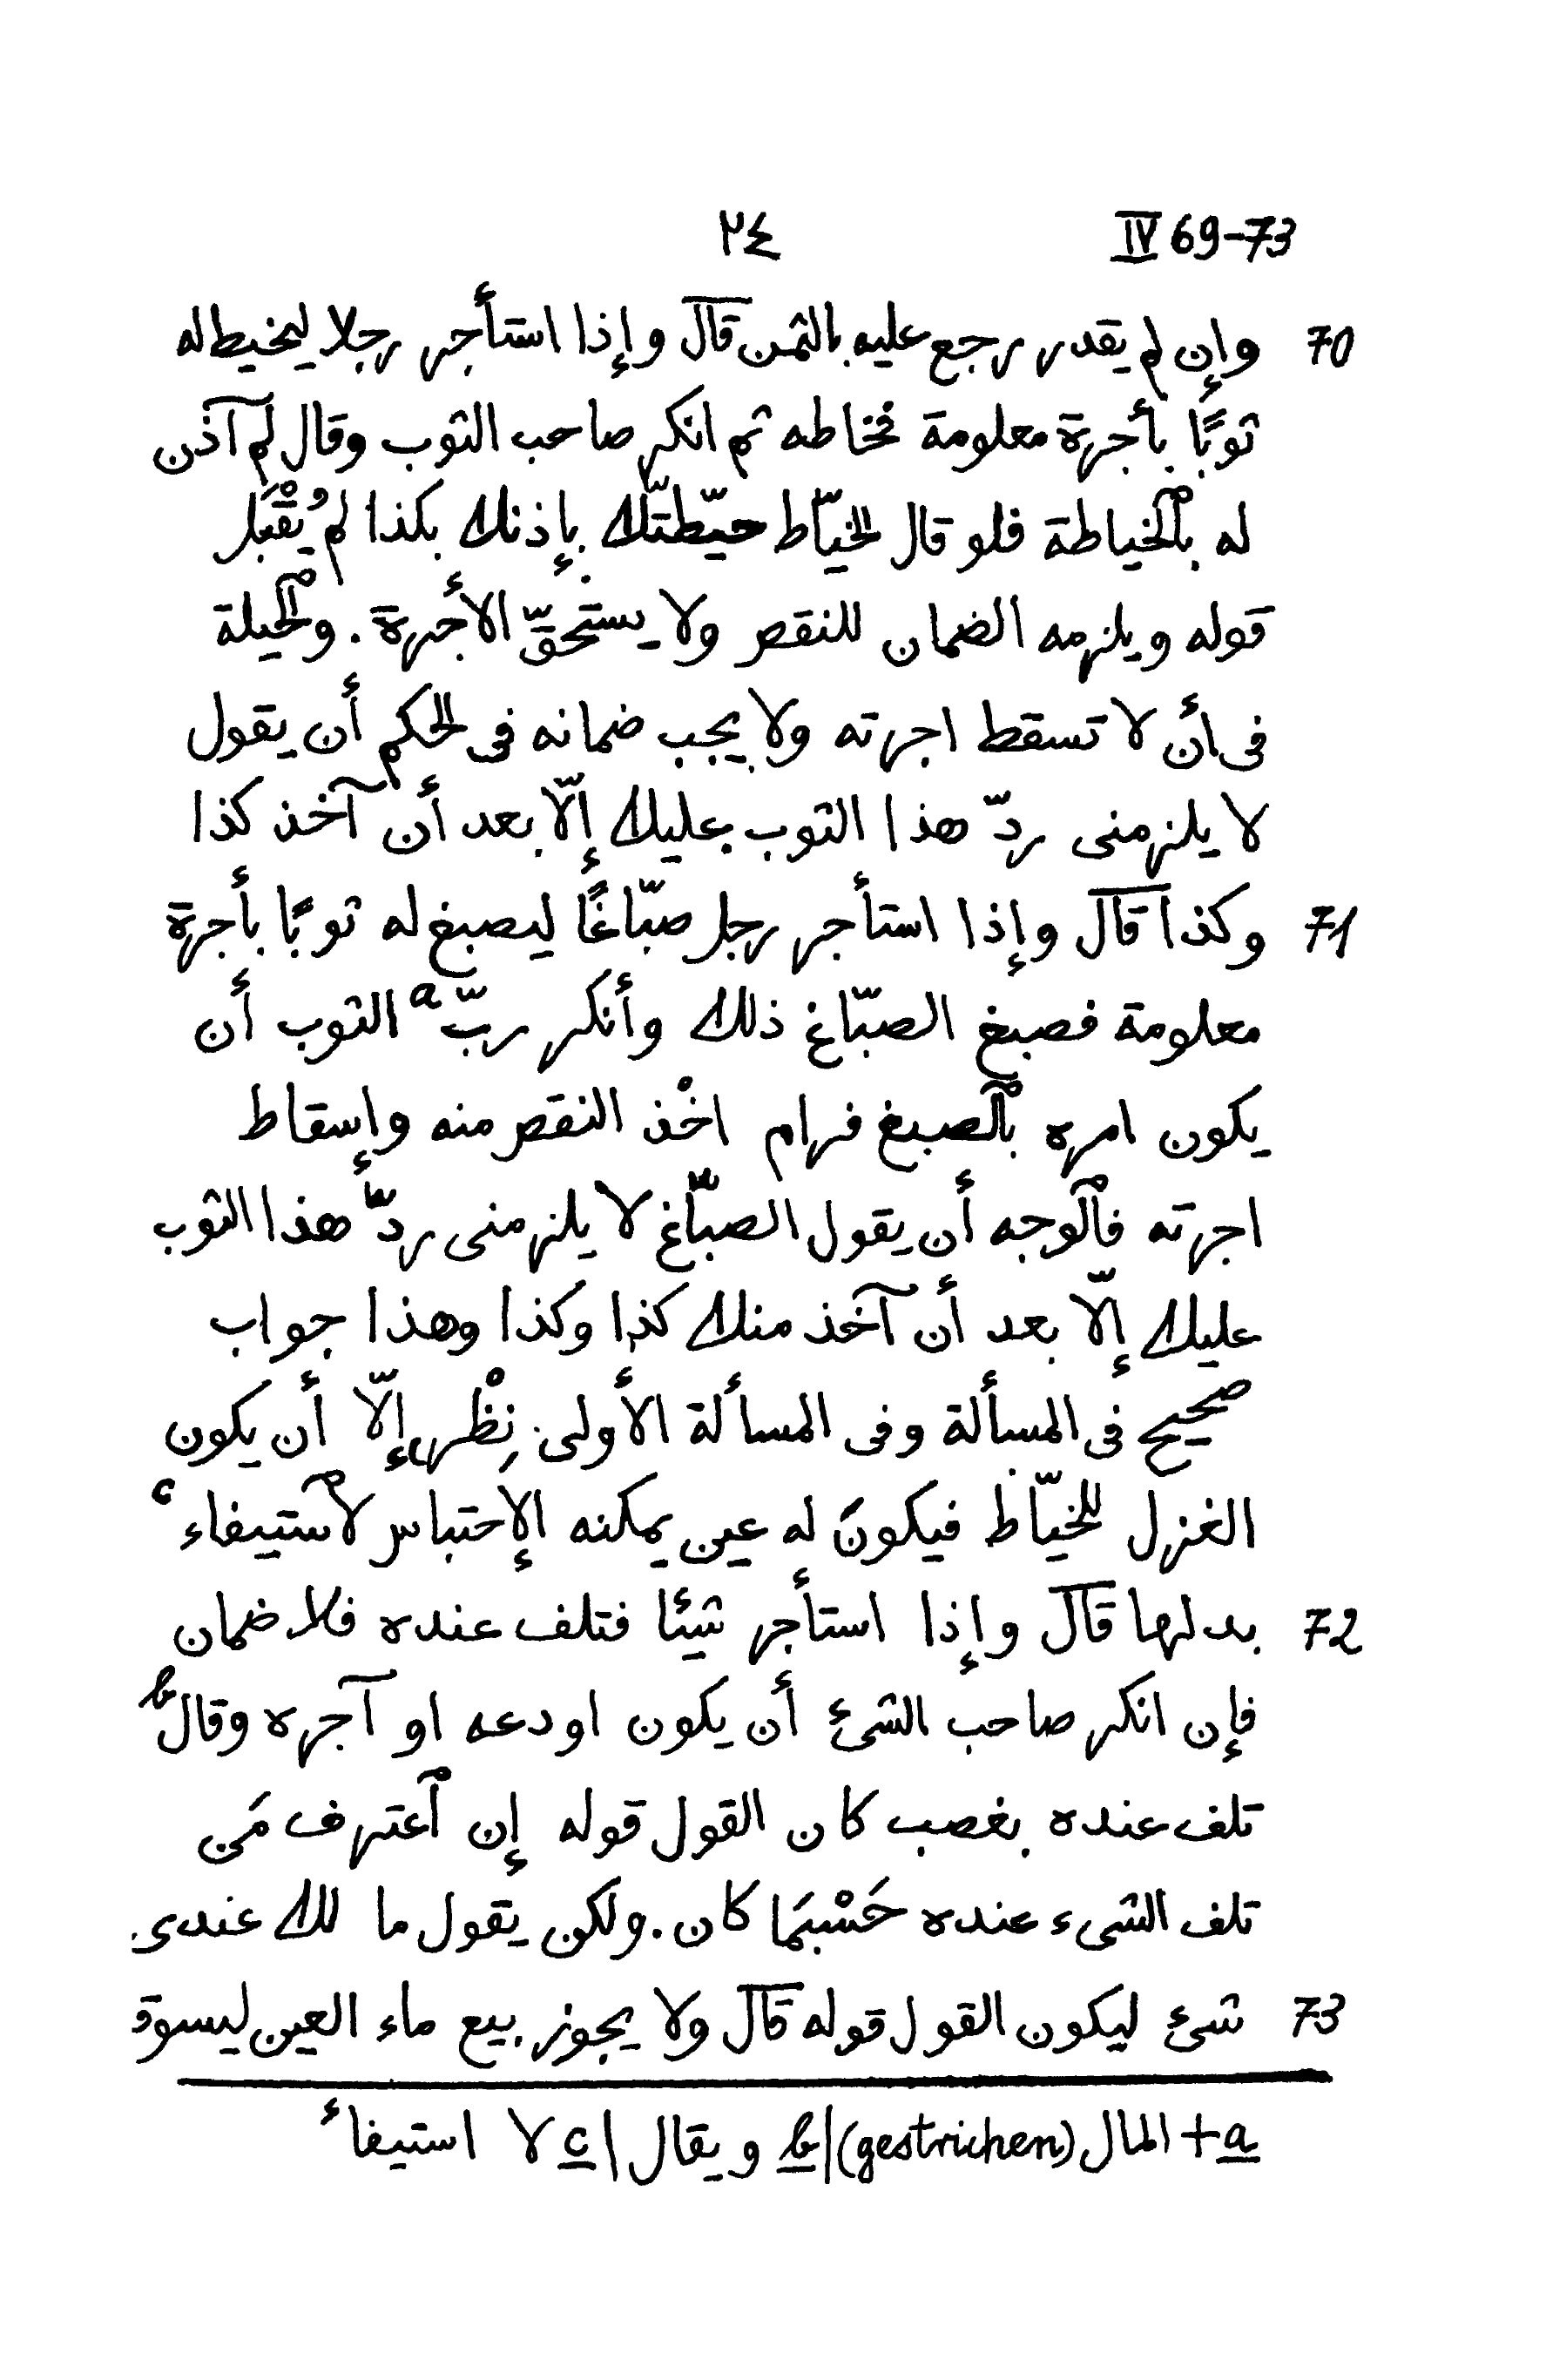 IV 69-73 ٢٤
70 وإن لم يقدر رجع عليه بالثمن قال وإذا استأجر رجلا ليخيط له
ثوبًا بأجرة معلومة فخاطه ثم انكر صاحب الثوب وقال لم آذن
له بٱلخياطة فلو قال الخيّاط خيّطتّك بإذنك بكذا لم يُقْبَل
قوله ويلزمه الضمان للنقص ولا يستحقّ الأجرة. وٱلحيلة
فى أن لا تسقط اجرته ولا يجب ضمانه فى الحكم أن يقول
لا يلزمنى ردّ هذا الثوب عليك إلّا بعد أن آخذ كذا
71 وكذا قال وإذا استأجر رجل صبّاغًا ليصبغ له ثوبًا بأجرة
معلومة فصبغ الصبّاغ ذلك وأنكر ربّ a الثوب أن
يكون امره بٱلصبغ فرام اخْذ النقص منه وإسقاط
اجرته فٱلوجه أن يقول الصبّاغ لا يلزمنى ردّ هذا الثوب
عليك إلّا بعد أن آخذ منك كذا وكذا وهذا جواب
صحيح فى المسألة وفى المسألة الأولى نِظْر إلّا أن يكون
الغزل للخيّاط فيكونَ له عين يمكنه الإحتباس لٱستيفاء c
72 بدلها قال وإذا استأجر شيئا فتلف عنده فلا ضمان
فإن انكر صاحب الشئ أن يكون اودعه او آجره وقال b
تلف عنده بغصب كان القول قوله إن ٱعترف مَن
تلف الشىء عنده حَسْبَمَا كان. ولكن يقول ما لك عندى
73 شئ ليكون القول قوله قال ولا يجوز بيع ماء العين ليسوق
a + المال (gestrichen) | b ويقال | c لا استيفاء